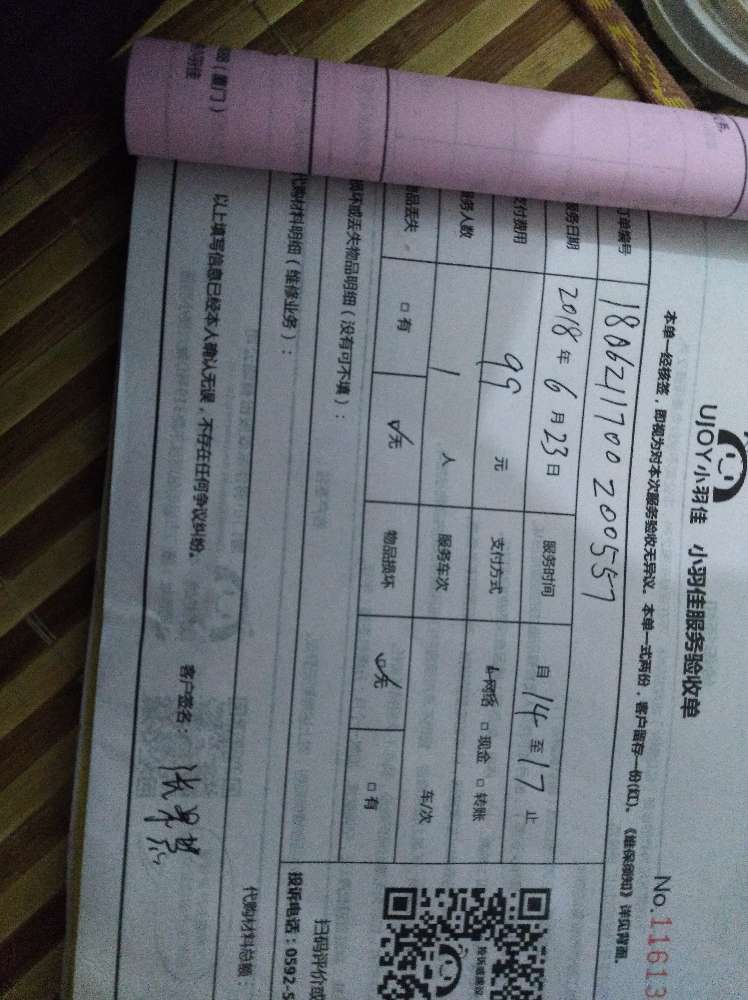 UJOY小羽佳 小羽佳服务验收单
No.11613
本单一经核签,即视为对本次服务验收无异议。本单一式两份,客户留存一份(红)。《维保须知》详见背面。
订单编号 180621700200557
服务日期 2018年6月23日 服务时间 自14至17止
支付费用 99元 支付方式 ☑网络 □现金 □转账
服务人数 1人 服务车次 车/次
物品丢失 □有 ☑无 物品损坏 ☑无 □有
损坏或丢失物品明细(没有可不填):
代购材料明细(维修业务):
代购材料总额:
以上填写信息已经本人确认无误,不存在任何争议纠纷。
客户签名:
投诉或建议
扫码评价或
投诉电话:0592-5
(厦门)
羽佳